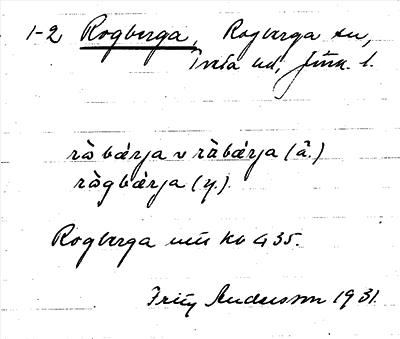 1-2 Rogberga, Rogberga sn,
Tveta hd, Jönk. l.
rò bǽrja v rà̊bǽrja (ä.)
rògbǽrja (y.).
Rogberga kb 435.
Fritz Andersson 1931.